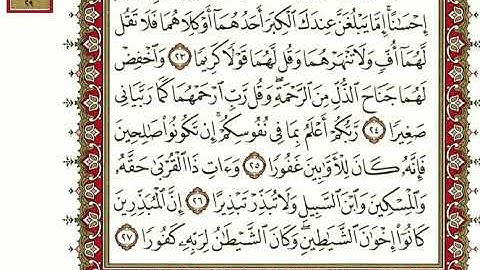 ٢٩
إِحْسَٰنًا ۚ إِمَّا يَبْلُغَنَّ عِندَكَ ٱلْكِبَرَ أَحَدُهُمَآ أَوْ كِلَاهُمَا فَلَا تَقُل
لَّهُمَآ أُفٍّ وَلَا تَنْهَرْهُمَا وَقُل لَّهُمَا قَوْلًا كَرِيمًا ٢٣ وَٱخْفِضْ
لَهُمَا جَنَاحَ ٱلذُّلِّ مِنَ ٱلرَّحْمَةِ ۖ وَقُل رَّبِّ ٱرْحَمْهُمَا كَمَا رَبَّيَانِى
صَغِيرًا ٢٤ رَّبُّكُمْ أَعْلَمُ بِمَا فِى نُفُوسِكُمْ ۚ إِن تَكُونُوا۟ صَٰلِحِينَ
فَإِنَّهُۥ كَانَ لِلْأَوَّٰبِينَ غَفُورًا ٢٥ وَءَاتِ ذَا ٱلْقُرْبَىٰ حَقَّهُۥ
وَٱلْمِسْكِينَ وَٱبْنَ ٱلسَّبِيلِ وَلَا تُبَذِّرْ تَبْذِيرًا ٢٦ إِنَّ ٱلْمُبَذِّرِينَ
كَانُوٓا۟ إِخْوَٰنَ ٱلشَّيَٰطِينِ ۖ وَكَانَ ٱلشَّيْطَٰنُ لِرَبِّهِۦ كَفُورًا ٢٧